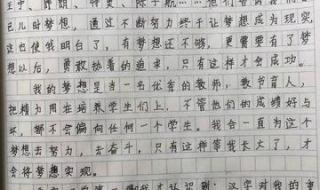 己儿时梦想，通过不断努力终于让梦想成为现实，
这也使我明白了，有梦想还不够，更需要有了梦
想以后，勇敢执着的追求，只有这样才会成功。
我的梦想是当一名优秀的教师，教书育人，
把精力用在培养学生们上，不管他们的成绩好与
坏，都不会偏向任何一个学生。我会一直为这个
梦想去努力，去奋斗，只有这种等我长大了，才
会将梦想实现。